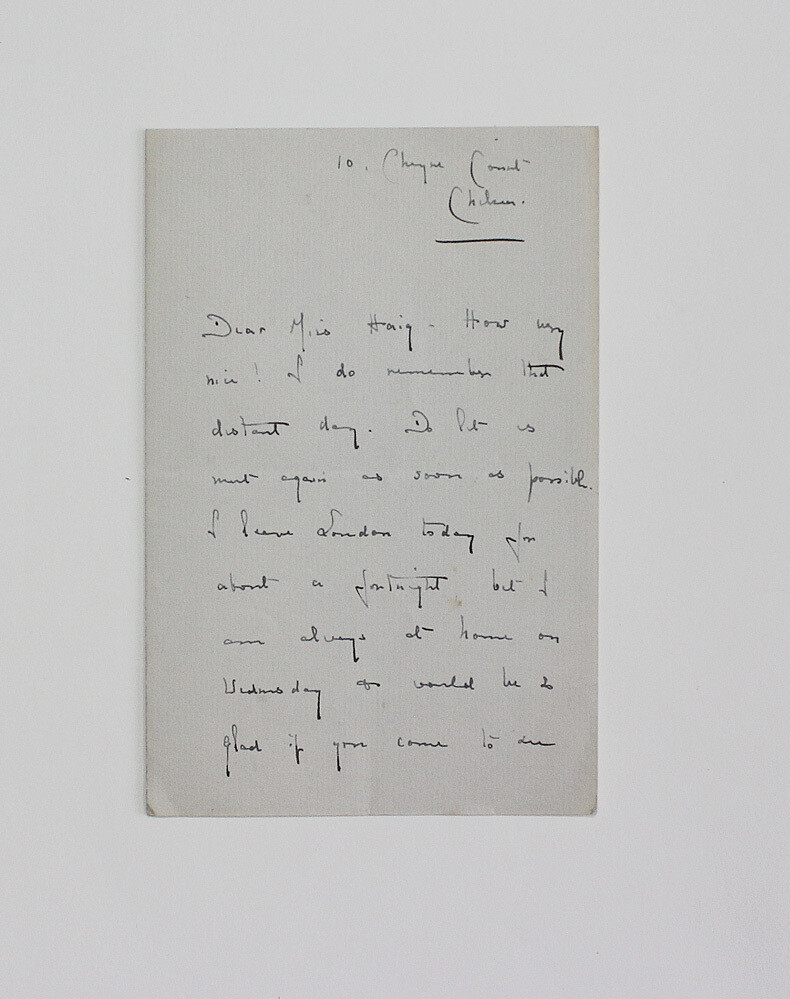 10, Cheyne Court
Chelsea.
Dear Miss Haig - How very
nice! I do remember that
distant day. Do let us
meet again as soon as possible.
I leave London today for
about a fortnight but I
am always at home on
Wednesday & would be so
glad if you come to see